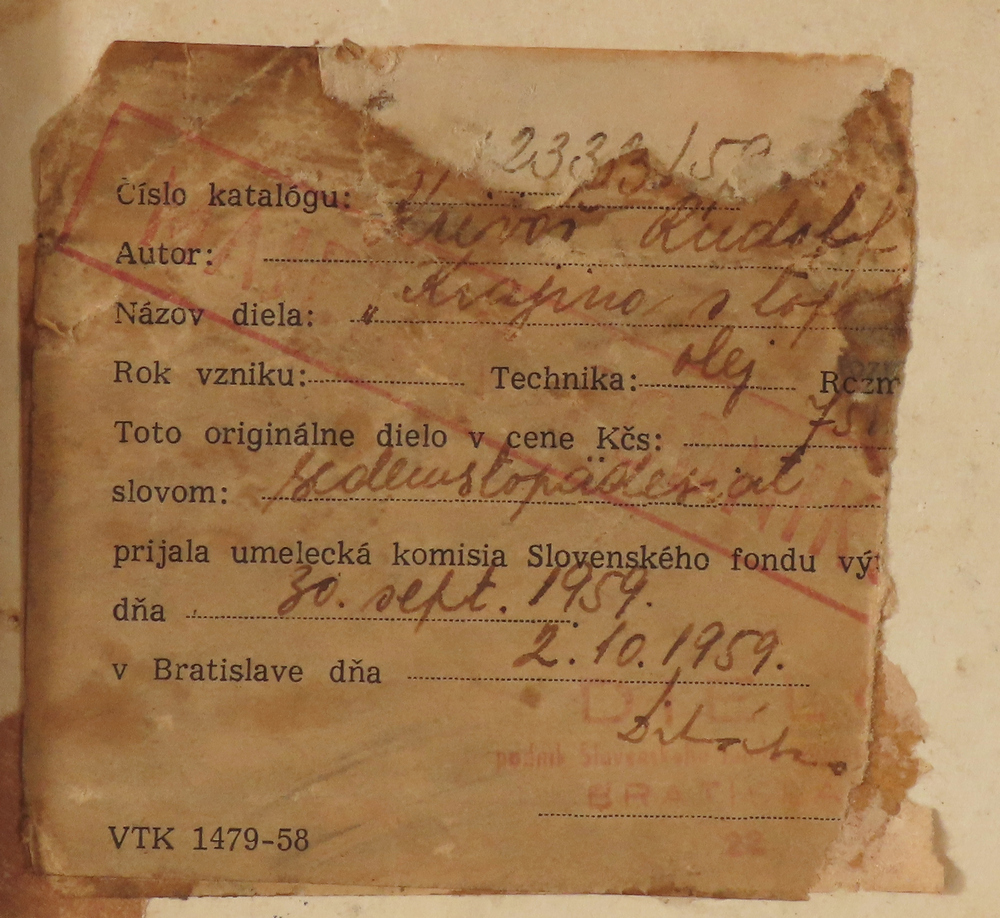 Číslo katalógu: 2333/59
Autor: Krivoš Rudolf
Názov diela: „Krajina s
Rok vzniku: Technika: olej Rozm
Toto originálne dielo v cene Kčs: 750
slovom: sedemstopädesiat
prijala umelecká komisia Slovenského fondu vý
dňa 30. sept. 1959.
v Bratislave dňa 2.10.1959.
DIELO
podnik Slovenského
BRATISLAVA
22
VTK 1479-58